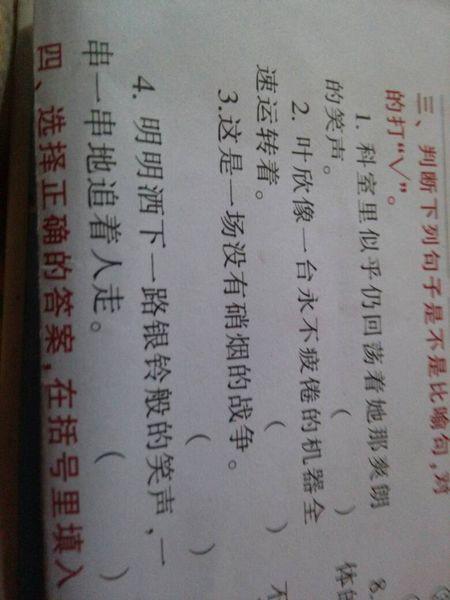 三、判断下列句子是不是比喻句,对
的打“√”。
1. 科室里似乎仍回荡着她那爽朗
的笑声。 ( )
2. 叶欣像一台永不疲倦的机器全
速运转着。 ( )
3.这是一场没有硝烟的战争。
( )
4. 明明洒下一路银铃般的笑声,一
串一串地追着人走。 ( )
四、选择正确的答案,在括号里填入
8.
体的